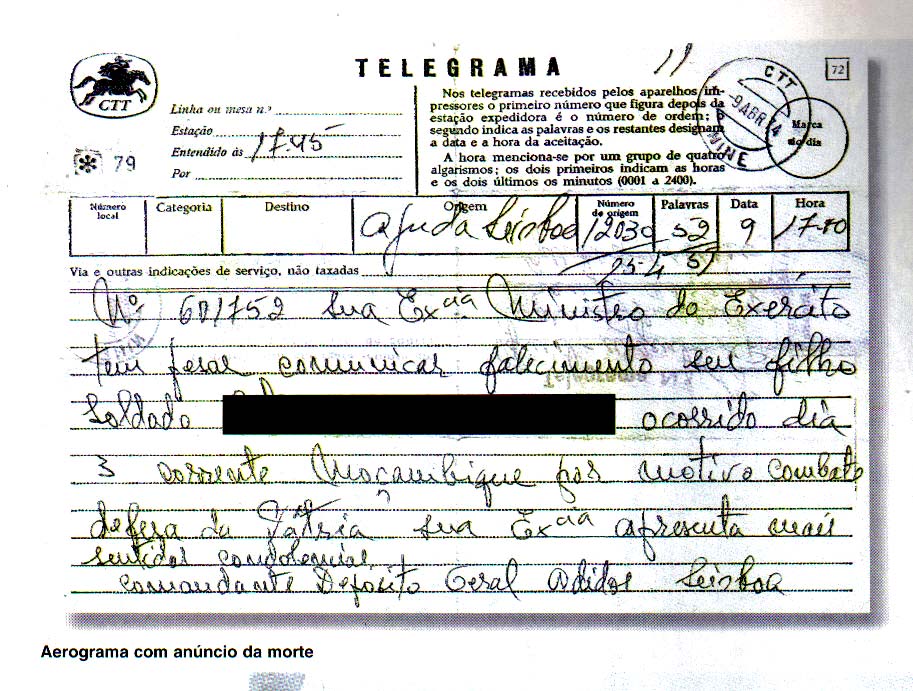 TELEGRAMA
11
72
CTT
CTT
-9 ABR 74
NINE
Marca do dia
Linha ou mesa n.º
Estação
Entendido às 17.45
Por
79
Nos telegramas recebidos pelos aparelhos im-
pressores o primeiro número que figura depois da
estação expedidora é o número de ordem; o
segundo indica as palavras e os restantes designam
a data e a hora da aceitação.
A hora menciona-se por um grupo de quatro
algarismos; os dois primeiros indicam as horas
e os dois últimos os minutos (0001 a 2400).
Número local Categoria Destino Origem Número de origem Palavras Data Hora
Ajuda Lisboa 12030 52 9 17-10
Via e outras indicações de serviço, não taxadas
25-4 51
Nº 601752 Sua Exciª Ministro do Exército
tem pesar comunicar falecimento seu filho
Soldado ocorrido dia
3 corrente Moçambique por motivo combate
defesa da Pátria sua Exciª apresenta mais
sentidas condolências
Comandante Depósito Geral Adidos Lisboa
Aerograma com anúncio da morte